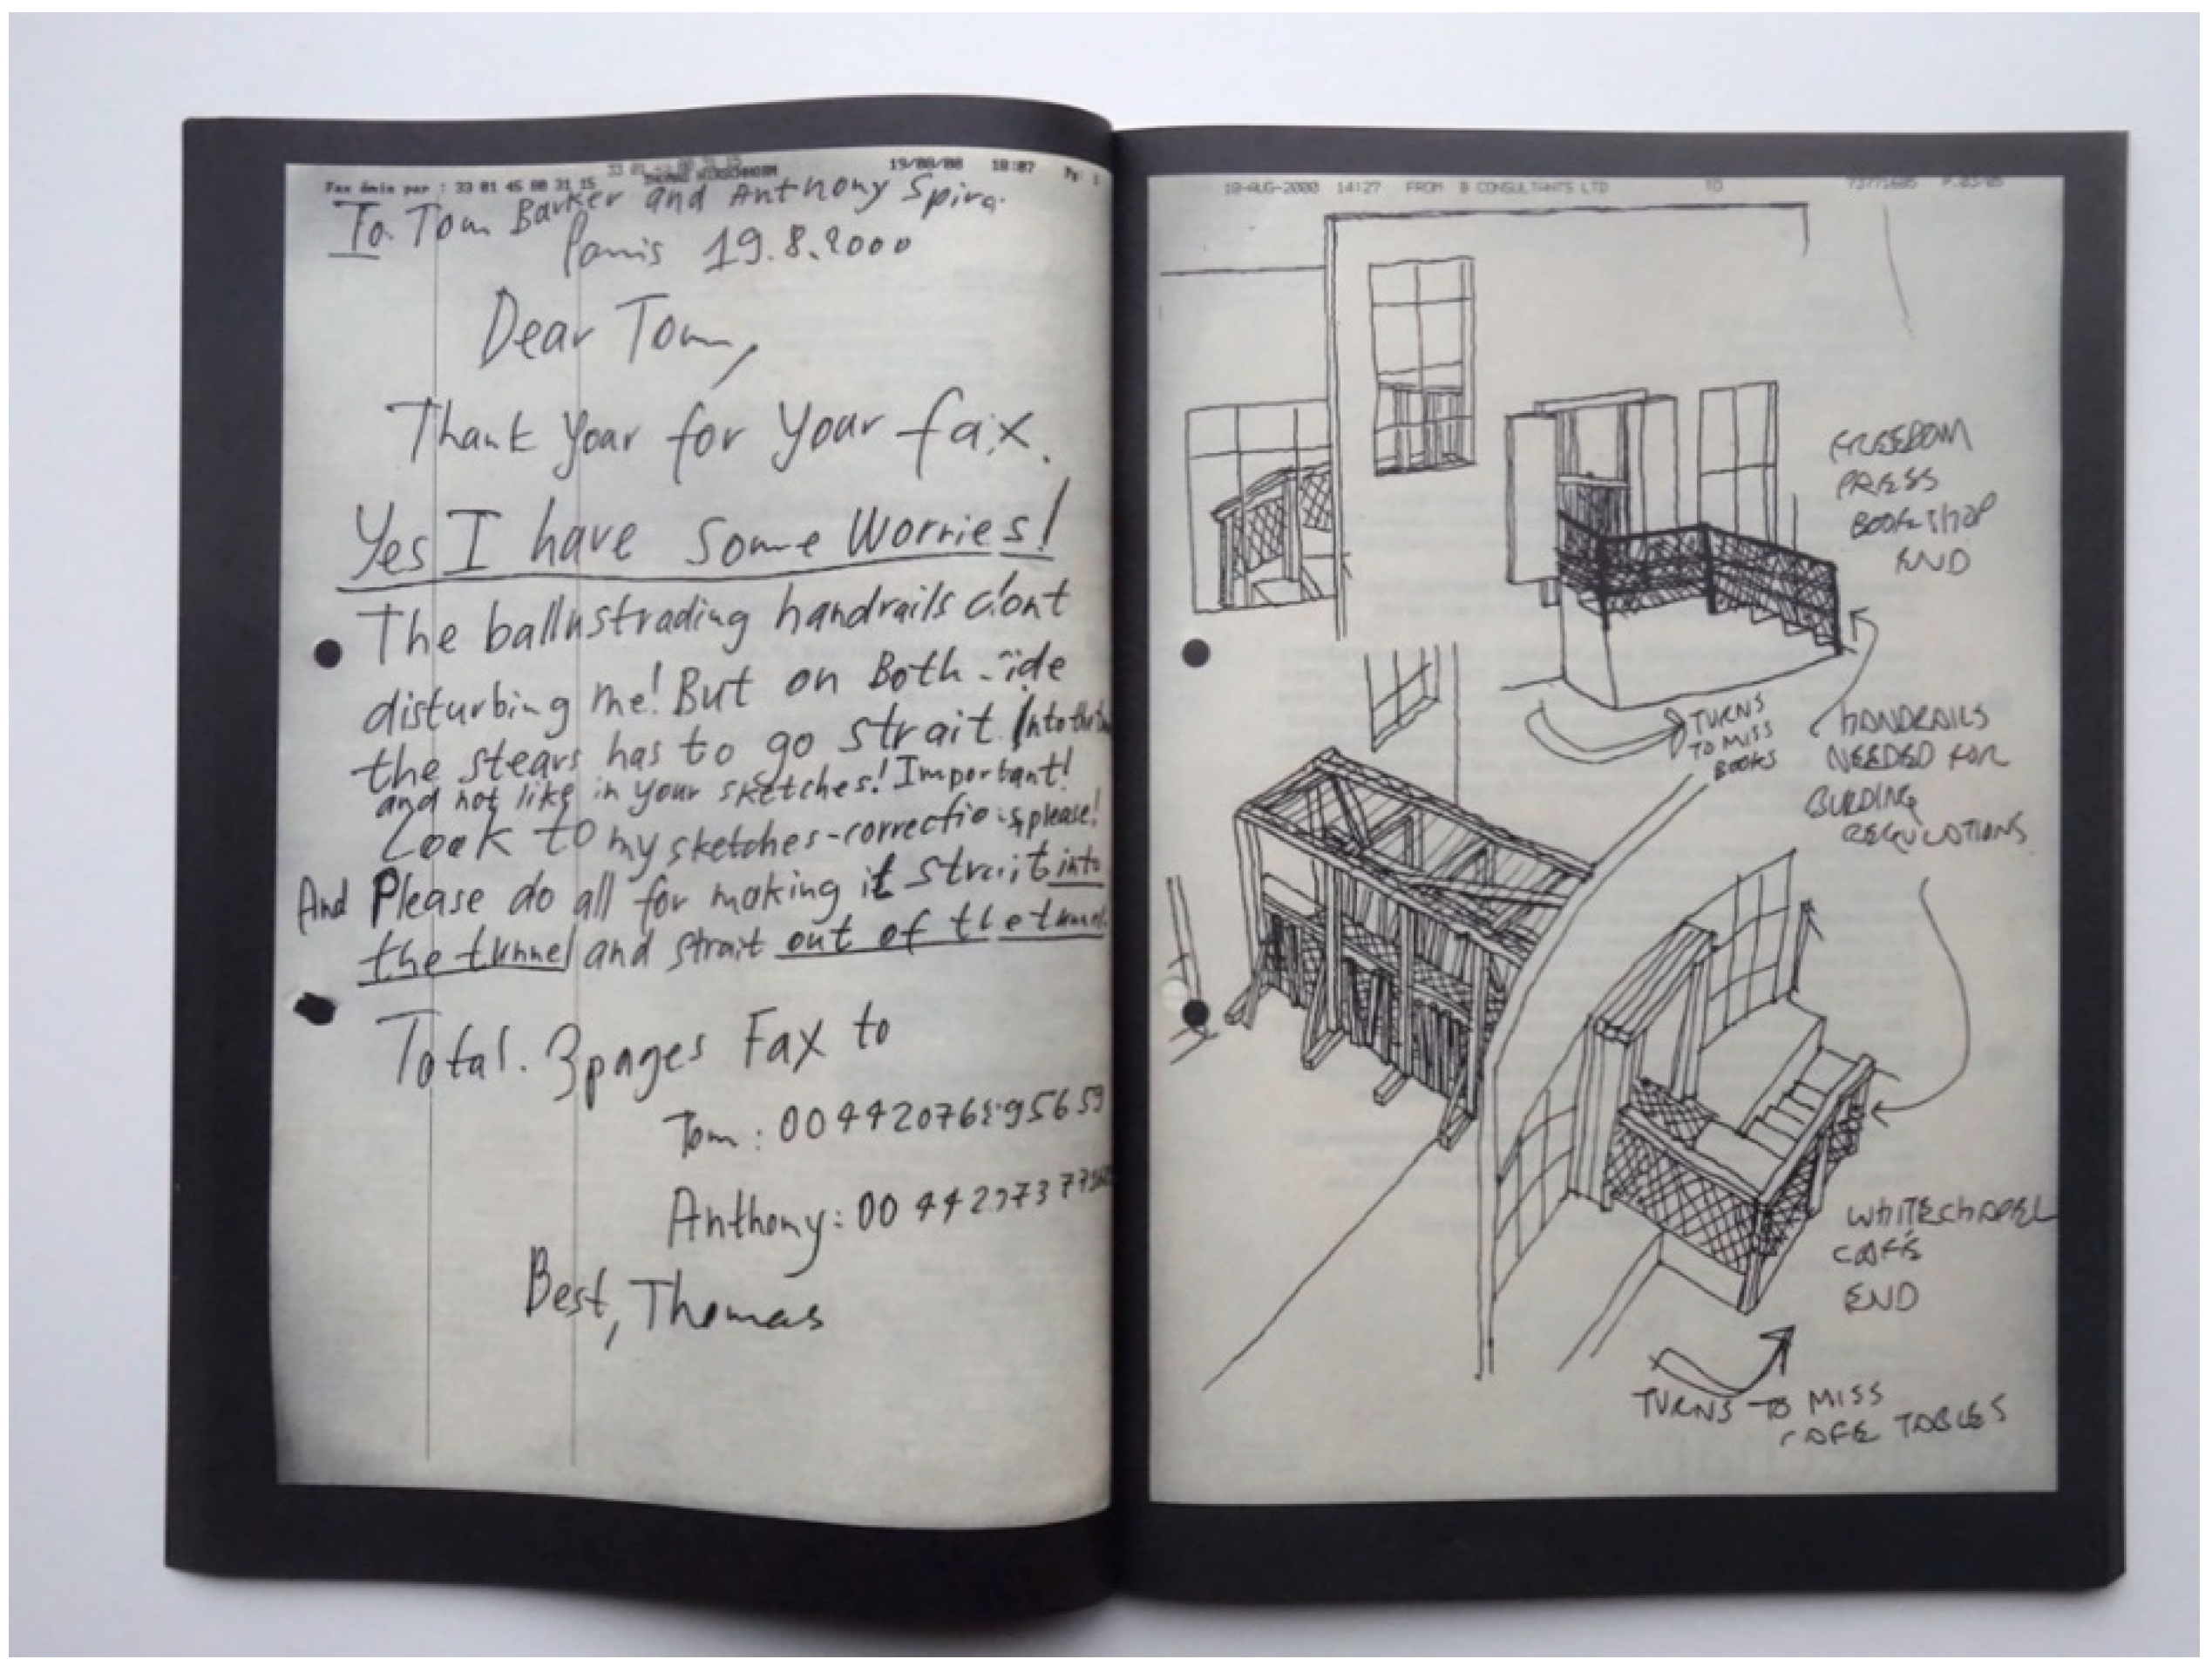 Fax émis par : 33 01 45 80 31 15
19/08/00 18:07
To. Tom Barker and Anthony Spira.
Paris 19.8.2000
Dear Tom,
Thank your for your fax.
Yes I have some Worries!
The ballustrading handrails dont
disturbing me! But on Both side
the stears has to go strait Into the
and not like in your sketches! Important!
Look to my sketches-corrections, please!
And Please do all for making it strait into
the tunnel and strait out of the tunnel.
Total. 3 pages Fax to
Tom:
Anthony:
Best, Thomas
18-AUG-2000 14:27 FROM B CONSULTANTS LTD TO
FREEDOM
PRESS
BOOKSHOP
END
TURNS
TO MISS
BOOKS
HANDRAILS
NEEDED FOR
BUILDING
REGULATIONS
WHITECHAPEL
CAFE
END
TURNS TO MISS
CAFE TABLES